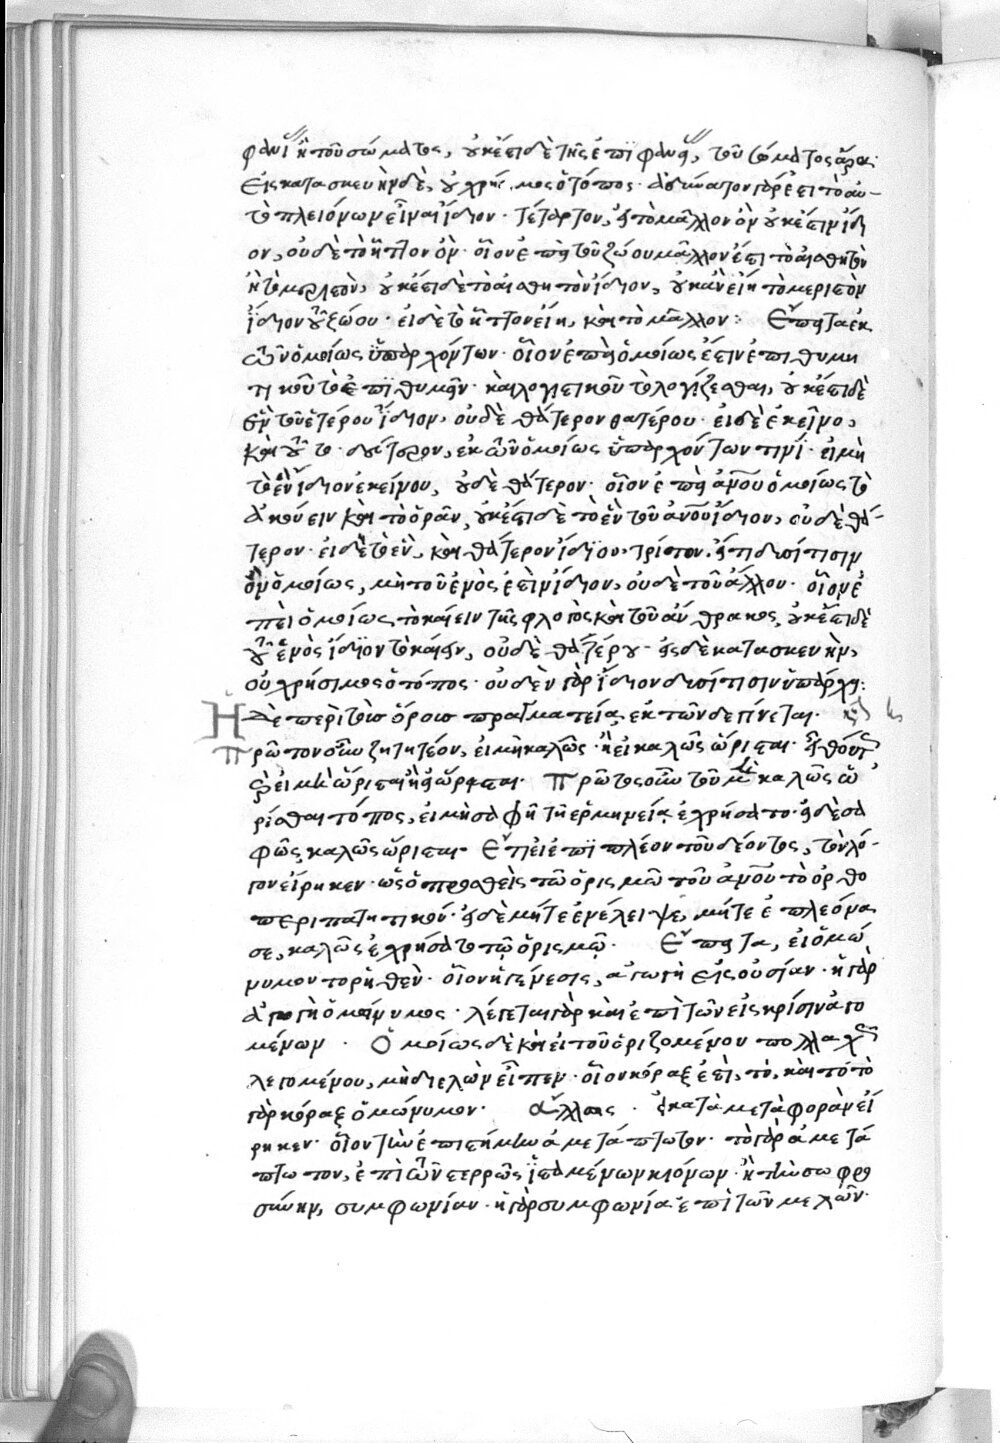 φανεί ἢ τοῦ σώματος, οὐκ ἔστι δὲ τῆς ἐπιφανεί, τοῦ σώματος ἄρα.
εἰς κατασκευὴν δὲ, οὐ χρήσιμος ὁ τόπος· ἀδύνατον γάρ ἐστι τὸ αὐ-
τὸ πλειόνων εἶναι ἴδιον· τέταρτον, εἰ τὸ μᾶλλον ὂν οὐκ ἔστιν ἴδι
ον, οὐδὲ τὸ ἧττον ὄν· οἷον ἐπεὶ τοῦ ζώου μᾶλλον ἐστι τὸ αἰσθητὸν
ἢ τὸ μεριστὸν, οὐκ ἔστι δὲ τὸ αἰσθητὸν ἴδιον, οὐκ ἂν εἴη τὸ μεριστὸν
ἴδιον τοῦ ζώου· εἰ δὲ τὸ ἧττον εἴη, καὶ τὸ μᾶλλον: Ἔπειτα ἐκ
τῶν ὁμοίως ὑπαρχόντων· οἷον ἐπεὶ ὁμοίως ἐστὶν ἐπιθυμη
τικοῦ τὸ ἐπιθυμεῖν· καὶ λογιστικοῦ τὸ λογίζεσθαι, οὐκ ἔστι δὲ
ἓν τοῦ ἑτέρου ἴδιον, οὐδὲ θάτερον θατέρου· εἰ δὲ ἐκεῖνο,
καὶ τοῦτο· δεύτερον, ἐκ τῶν ὁμοίως ὑπαρχόντων τινί· εἰ μὴ
τὸ ἓν ἴδιον ἐκείνου, οὐδὲ θάτερον· οἷον ἐπεὶ ἀνου ὁμοίως τὸ
ἀκούειν καὶ τὸ ὁρᾶν, οὐκ ἔστι δὲ τὸ ἓν τοῦ ἀνου ἴδιον, οὐδὲ θά-
τερον· εἰ δὲ τὸ ἓν, καὶ θάτερον ἴδιον· τρίτον, εἴ τι δυσί τισιν
ὂν ὁμοίως, μὴ τοῦ ἑνὸς ἐστὶν ἴδιον, οὐδὲ τοῦ ἄλλου· οἷον ἐ
πεὶ ὁμοίως τὸ καίειν τῆς φλογὸς καὶ τοῦ ἄνθρακος, οὐκ ἔστι δὲ
τοῦ ἑνὸς ἴδιον τὸ καίειν, οὐδὲ θατέρου· εἰς δὲ κατασκευὴν,
οὐ χρήσιμος ὁ τόπος· οὐδὲν γὰρ ἴδιον δυσί τισιν ὑπάρχει:
Ἡ δὲ περὶ τοὺς ὅρους πραγματεία, ἐκ τῶνδε γίνεται·
Πρῶτον οὖν ζητητέον, εἰ μὴ καλῶς· ἢ εἰ καλῶς ὥρισται·
εἰ μὴ ὥρισται ἢ εἰ ὥρισται· Πρῶτος οὖν τοῦ μὴ καλῶς ὡ
ρίσθαι τόπος, εἰ μὴ σαφῆ τῇ ἑρμηνείᾳ ἐχρήσατο· εἰ δὲ σα
φῶς, καλῶς ὥρισται· Ἔπει εἰ ἐπὶ πλέον τοῦ δέοντος, τὸν λό-
γον εἴρηκεν· ὡς ὁ προσθεὶς τῷ ὁρισμῷ τοῦ ἀνου τὸ ὀρθο
περιπατητικοῦ· εἰ δὲ μήτε ἐνέλειψε, μήτε ἐπλεόνα
σε, καλῶς ἐχρήσατο τῷ ὁρισμῷ· Ἔπειτα, εἰ ὁμώ
νυμον τὸ ῥηθέν· οἷον ἡ γένεσις, ἀγωγὴ εἰς οὐσίαν· ἡ γὰρ
ἀγωγὴ ὁμώνυμος· λέγεται γὰρ καὶ ἐπὶ τῶν εἰς κρίσιν ἀγο
μένων· Ὁμοίως δὲ καὶ εἰ τοῦ ὁριζομένου πολλαχῶς
λεγομένου, μὴ διελὼν εἶπεν· οἷον κόραξ ἐστὶ, τὸ, καὶ τό τὸ
γὰρ κόραξ ὁμώνυμον· Ἄλλος· εἰ κατὰ μεταφορὰν εἴ
ρηκεν· οἷον τὴν ἐπιστήμην ἀμετάπτωτον· τὸ γὰρ ἀμετά
πτωτον, ἐπὶ τῶν στερρῶς ἱσταμένων κιόνων· ἢ τὴν σωφρο
σύνην, συμφωνίαν· ἡ γὰρ συμφωνία ἐπὶ τῶν μελῶν·